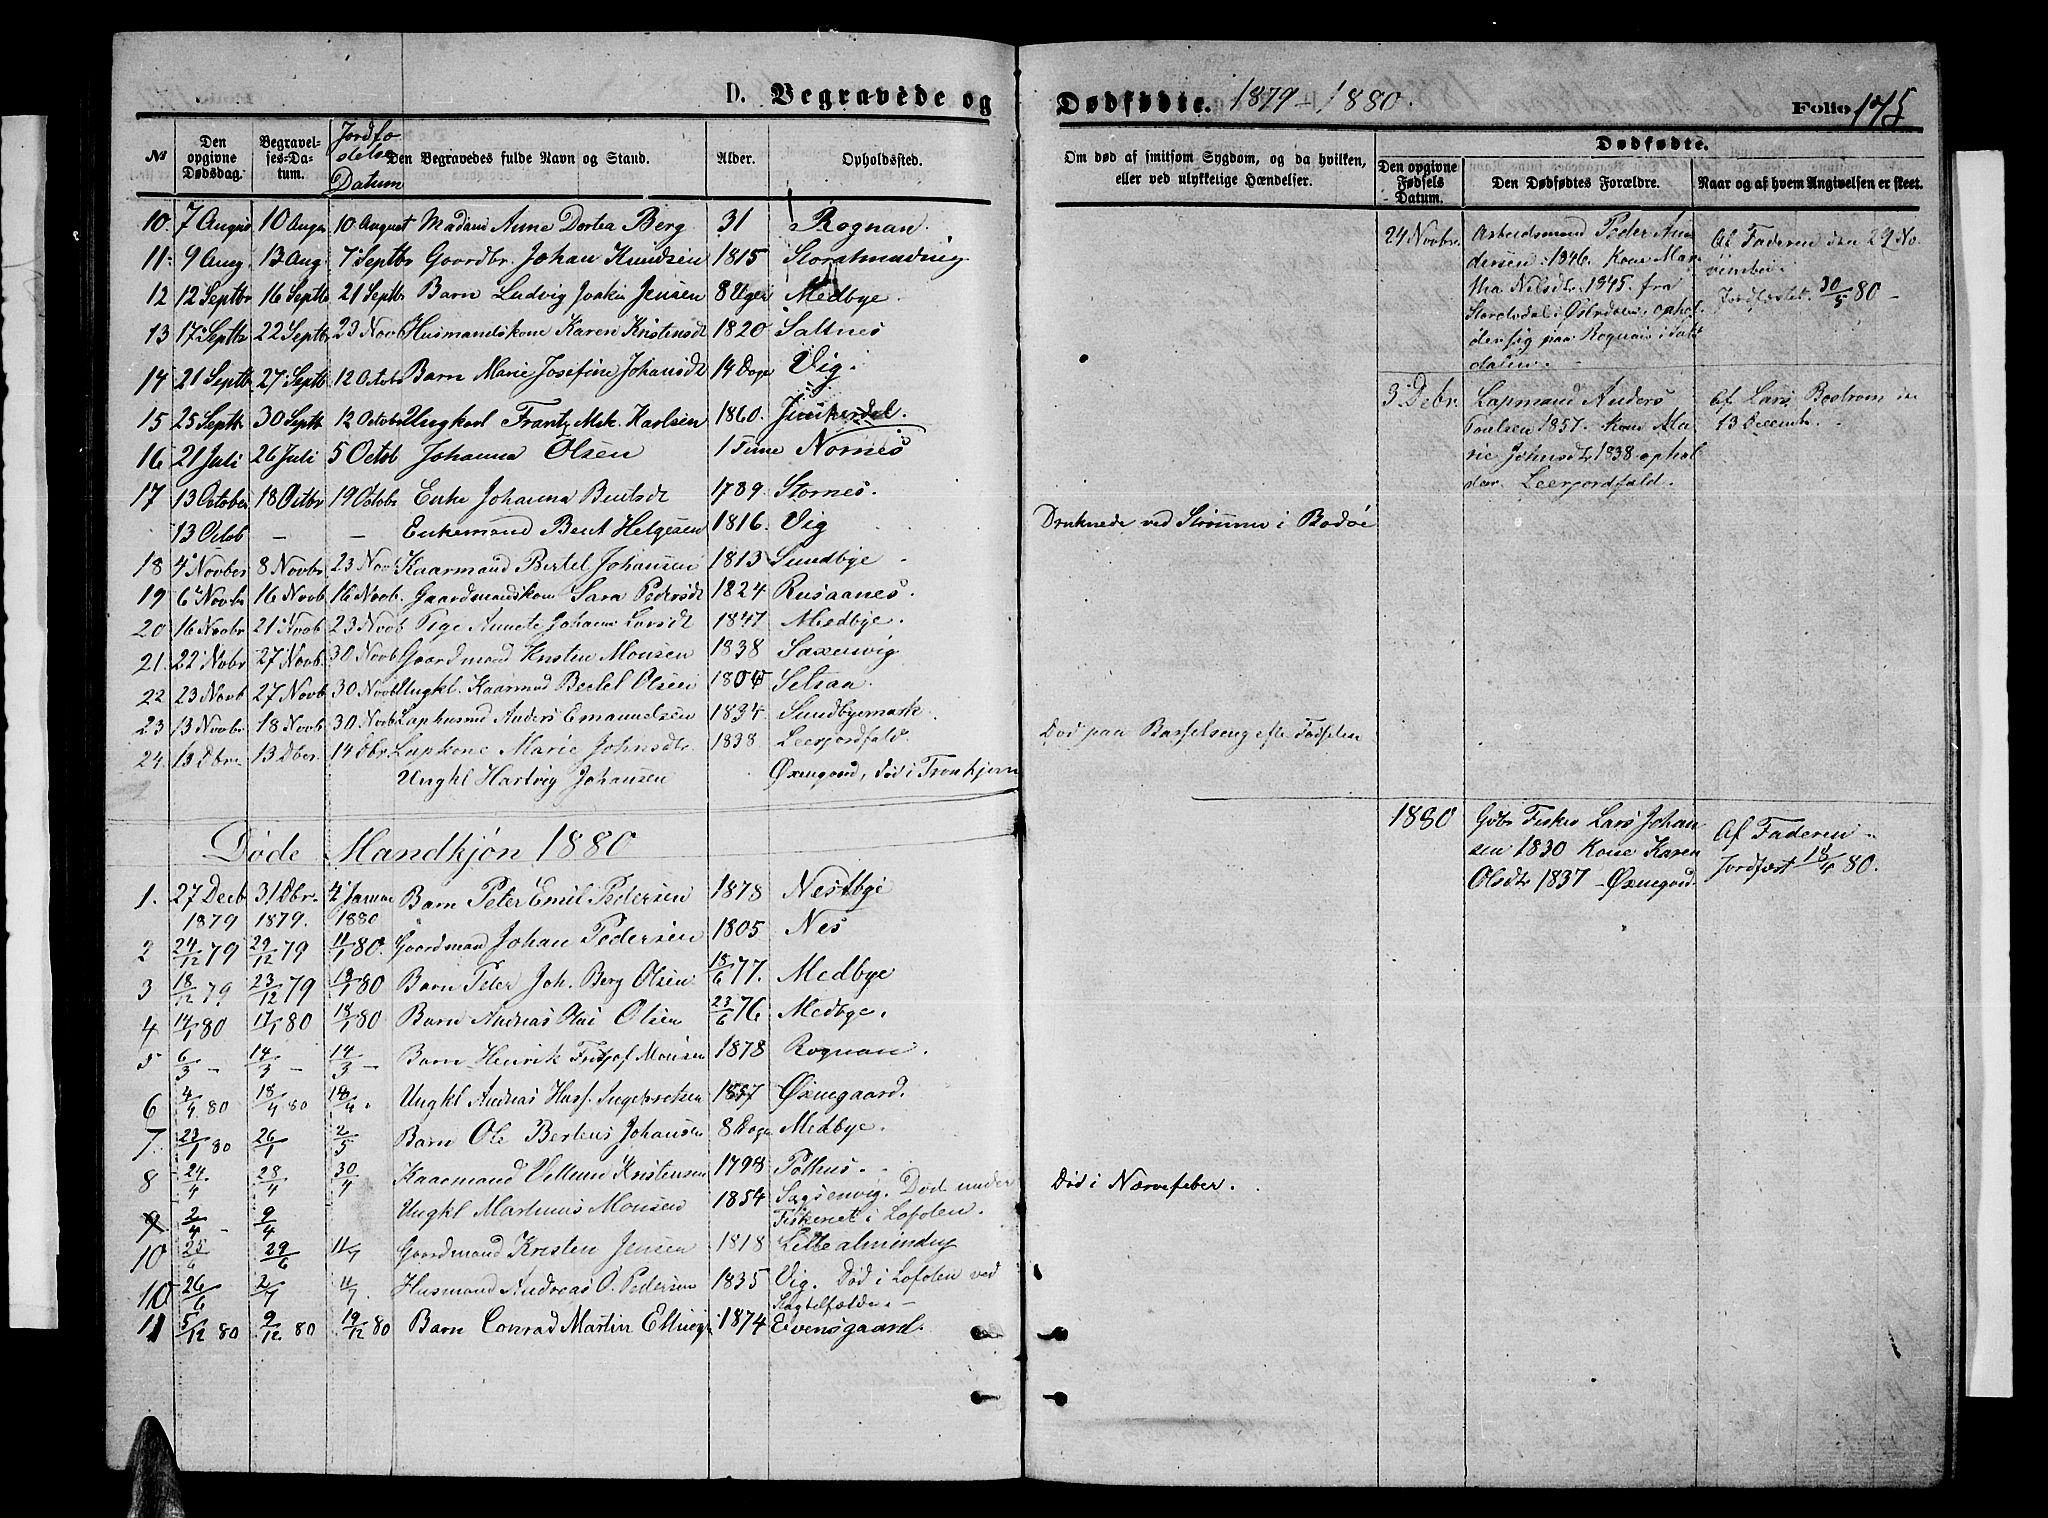 D. Begravede og
Dødfødte. 1879-1880.
Folio 175
№
Den opgivne Dødsdag.
Begravelses-Datum.
Jordfæstelse Datum
Den Begravedes fulde Navn og Stand.
Alder.
Opholdssted.
Om død af smitsom Sygdom, og da hvilken,
eller ved ulykkelige Hændelser.
Dødfødte.
Den opgivne Fødsels Datum.
Den Dødfødtes Forældre.
Naar og af hvem Angivelsen er skeet.
10. 7 August 10 Augu 10 August Madam Anne Dortea Berg 31 Rognan.
11. 9 Aug. 13 Aug. 7 Septbr Gaardbr. Johan Knudsen 1815 Storalmindnig
12 12 Septbr 16 Septbr 21 Septbr Barn Ludvig Joakim Jensen 8 Uger Medbye.
13 17 Septbr 22 Septbr 23 Novb Husmandskone Karen Kristensdt 1820 Saltnes
14 21 Septbr 27 Septb 12 Octobr Barn Marie Josefine Johansdt 14 Dage Vig.
15 25 Septb 30 Septb 12 Octobr Ungkarl Frantz Mik. Karlsen 1860. Junkerdal.
16 21 Juli 26 Juli 5 Octob Johanna Olsen 1 Time Nornes
17 13 October 18 Octbr 19 Octobr Enke Johanna Bentsdt 1789 Stornes.
13 Octob — — Enkemand Bent Helgesen 1816. Vig Druknede ved Strømmen i Bodøe
18 4 Novber 8 Novbr 23 Novb Kaarmand Bertel Johansen 1813 Sundbye
19 6 Novbr 16 Novb 16 Novb. Gaardmandskone Sara Pedersdt 1824 Rusaanes.
20 16 Novbr 21 Novb 23 Novb Pige Annete Johanna Larsdt 1847 Medbye.
21. 22 Nobr 27 Novb. 30 Novb Gaardmand Kristen Monsen 1838 Saxenvig
22 23 Novb 27 Novb 30 Novb Ungkl. Kaarmnd Bertel Olsen Setsaa.
23 13 Novbr 18 Novb 30 Novb Laphusmd Anders Emanuelsen 1834 Sundbyemark.
24. 13 Dbr. 13 Dber. 14 Dbr. Lapkone Marie Johnsdtr 1838 Leerjordfald. Død paa Barselseng efter Fødselen
Ungkl Hartvig Johansen Øxnegaard, død i Tronhjem
Døde Mandkjøn 1880
1. 27 Decb 1879 31 Dbr. 1879. 4 Januar 1880 Barn Peter Emil Pedersen 1878 Nestbye
2 24/12 79 29/12 79 11/1 80. Gaardmand Johan Pedersen 1805 Nes
3 18/12 79. 23/12 79 18/1 80 Barn Peter Joh. Berg Olsen 18/6 77. Medbye
4 14/1 80 17/1 80 18/1 80 Barn Andreas Olai Olsen 23/6 76 Medbye.
5 6/3 — 14/3 — 14/3 — Barn Henrik Fritjof Monsen 1878 Rognan.
6 4/4 80 18/4 80 18/4. Ungkl Andreas Hasf. Ingebretsen 1857 Øxnegaard.
7. 23/1 80 26/1 2/5 Barn Ole Bertens Johansen 8 Dage Medbye.
8 24/4 28/4 30/4 Kaarmand Kristensen 1798 Pothus.
9 2/4 — 9/4 Ungkl Martinus Monsen 1854 Saxsenvig. Død under Fiskeriet i Lofoten. Død i Nærvefeber.
10 25/6 29/6 11/7 Gaardmand Kristen Jensen 1818 Lillealminding
10 26/6 2/7 4/7. Husmand Andreas O. Pedersen 1835 Vig. Død i Lofoten ved Slagtilfælde. —
11 5/12 80 9/12 80 19/12 80 Barn Conrad Martin Ellings 1874 Evensgaard.
24 Novbr. Arbeidsmand Peder An
dersen 1846. Kone Mar
tha Nilsdtr 1845. fra
Storelvdal i Østerdalen, ophol
der sig paa Rognan i Salt
dalen.
Af Faderen den 29 No
vember.
Jordfæstet 30/5 80 —
3 Debr. Lapmand Anders
Paulsen 1857. Kone Ma
rie Johnsdtr 1838 ophol
der. Leerjordfald.
Af Lars Bostrøm den
13 Decemb.
1880 Gdbr Fisker Lars Johan
sen 1830 Kone Karen
Olsdtr 1837 — Øxnegard.
Af Faderen
Jordfæst 18/4 80.